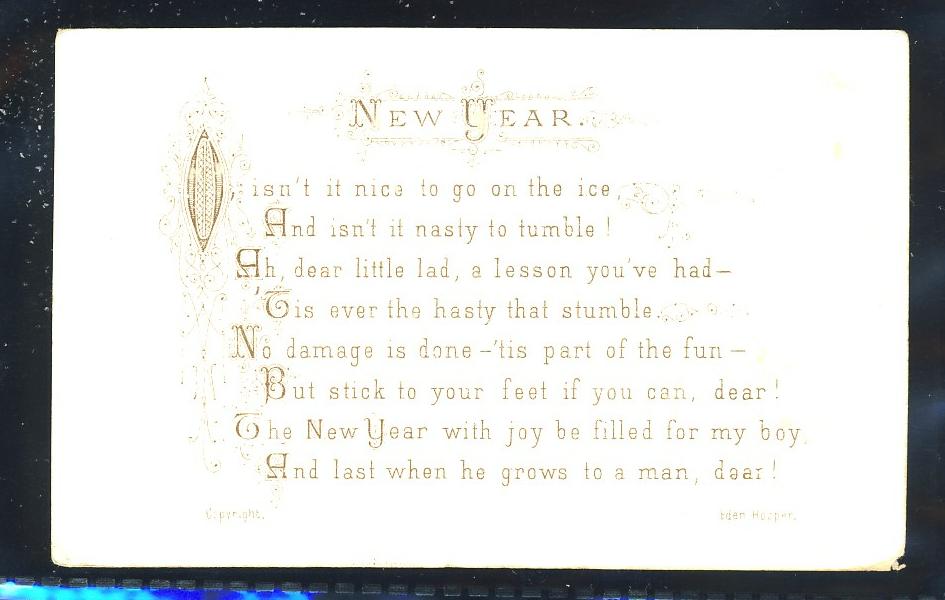 NEW YEAR.
O, isn't it nice to go on the ice,
And isn't it nasty to tumble!
Ah, dear little lad, a lesson you've had—
'Tis ever the hasty that stumble.
No damage is done—'tis part of the fun—
But stick to your feet if you can, dear!
The New Year with joy be filled for my boy,
And last when he grows to a man, dear!
Copyright.
Eden Hooper.